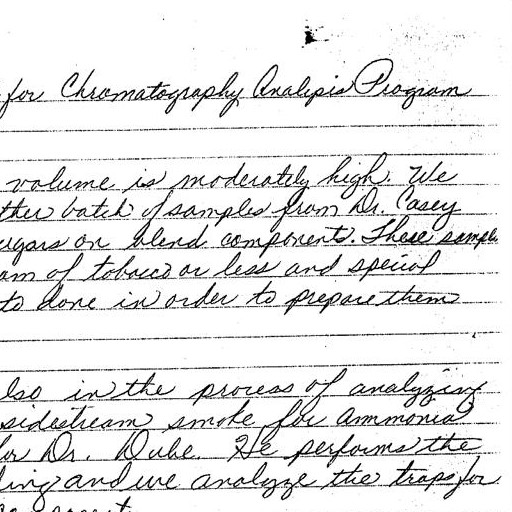 for Chromatography Analysis Program
volume is moderately high. We
ther batch of samples from Dr. Casey
ugars on blend components. These sample
am of tobacco or less and special
to done in order to prepare them
lso in the process of analyzing
sidestream smoke for ammonia
for Dr. Dube. He performs the
ling and we analyze the traps for